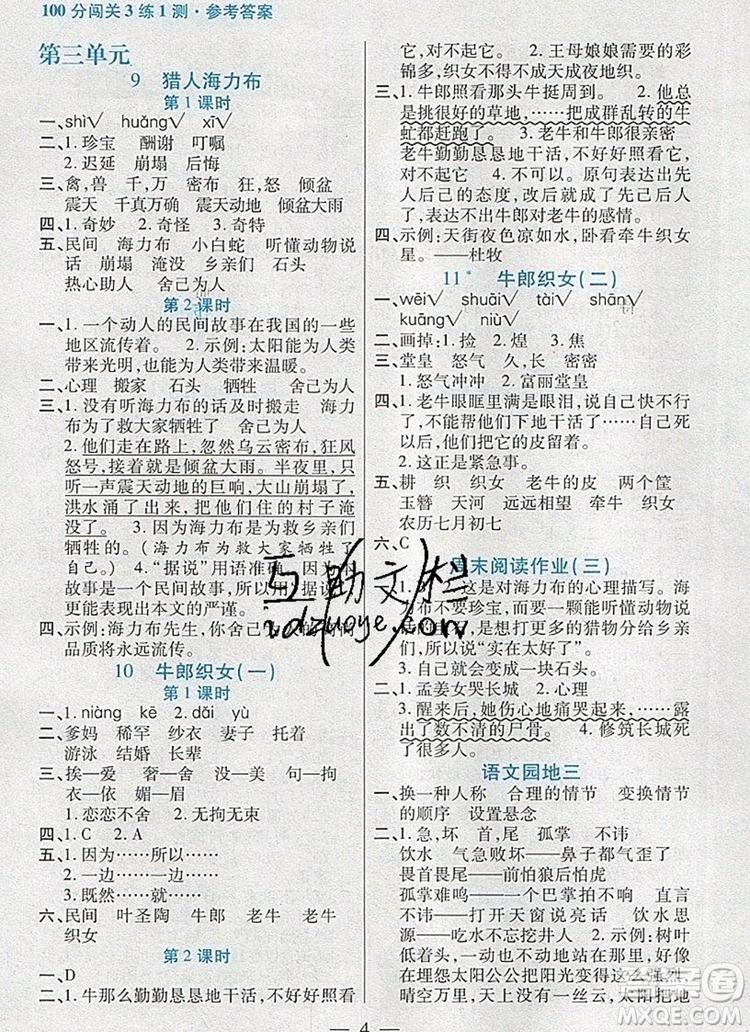 100分闯关3练1测·参考答案
第三单元
9 猎人海力布
第1课时
一、shì√ huǎng√ xī√
二、1.珍宝 酬谢 叮嘱
2.迟延 崩塌 后悔
三、禽,兽 千,万 密布 狂,怒 倾盆
震天 千真万确 震天动地 倾盆大雨
四、1.奇妙 2.奇怪 3.奇特
五、民间 海力布 小白蛇 听懂动物说
话 崩塌 淹没 乡亲们 石头
热心助人 舍己为人
第2课时
一、1.一个动人的民间故事在我国的一些
地区流传着。 2.示例:太阳能为人类
带来光明,也能为人类带来温暖。
二、心理 搬家 石头 牺牲 舍己为人
三、1.没有听海力布的话及时搬走 海力
布为了救大家牺牲了 舍己为人
2.他们走在路上,忽然乌云密布,狂风
怒号,接着就是倾盆大雨。半夜里,只
听一声震天动地的巨响,大山崩塌了,
洪水涌了出来,把他们住的村子淹
没了。 3.因为海力布是为救乡亲们
牺牲的。(海力布为救大家牺牲了自
己。) 4.“据说”用语准确,因为
故事是一个民间故事,所以用“据说”
表现出本文的严谨。
四、示例:海力布先生,你舍己
品质将永远流传。
10 牛郎织女(一)
第1课时
一、1.niàng kē 2.dǎi yù
二、爹妈 稀罕 纱衣 妻子 托着
游泳 结婚
三、挨—爱 奢—舍 婚—结 拘—钩
花—衣 媚—眉
1.恋恋不舍 2.无拘无束
四、1.C 2.A
五、1.因为……所以……
2.一边……一边……
3.既然……就……
六、民间 叶圣陶 牛郎 老牛 老牛
织女
第2课时
一、D
二、1.牛那么勤勤恳恳地干活,不好好照看
它,对不起它。 2.王母娘娘需要的彩
锦多,织女没日没夜地织。
三、1.牛郎照看那头牛挺周到。 2.他总
是挑很好的草地,……把成群乱转的牛
虻都赶跑了。 3.老牛和牛郎很亲密
老牛勤勤恳恳地干活,不好好照看它,
对不起它 4.不可以。原句表达出先
人后己的态度,改后只是平铺直叙,没
有表达出牛郎对老牛的感情。
四、示例:天街夜色凉如水,卧看牵牛织女
星。——杜牧
11* 牛郎织女(二)
一、wēi√ shuāi√ tài√ shān√
kuāng√ niù√
二、画掉:1.捡 2.煌 3.山 4.焦
三、堂皇 怒气 久,长 密密
1.怒气冲冲 2.富丽堂皇
四、1.老牛眼眶里满是眼泪,说自己快不行
了,不能帮你们下地干活了,咱们快分
手了,他们把它的皮留着。
2.正商量着紧急事。
五、耕 织 织女 老牛的皮 两个筐
玉簪 天河 远远相望 牵牛 织女
农历七月初七
六、C
周末阅读作业(三)
一、1. 2.这是对海力布的心理描写。海
力布不要珍宝,而要一颗能够听懂动物说
是想打更多的猎物分给乡亲
们,所以他说“实在太好了”。
3.自己就会变成一块石头。
二、1.孟姜女哭长城 2.心理
3.醒来后,她伤心地痛哭起来……露
出了数不清的尸骨。 4.修筑长城死了
很多人。
语文园地三
一、换一种人称 合理的情节 变换情节
的顺序 设置悬念
二、1.急,坏 首,尾 孤掌 不讳
饮水 气急败坏——鼻子都气歪了
畏首畏尾——前怕狼后怕虎
孤掌难鸣——一个巴掌拍不响 直言
不讳——打开天窗说亮话 饮水思
源——吃水不忘挖井人 2.示例:树叶
低着头,一动也不动地站在那里,好像
在埋怨太阳公公把阳光变得这么强烈。
晴空万里的天上有一丝云,太阳把地面
4
互助文档
zdzuoye.com
作业答案
MXQE.COM